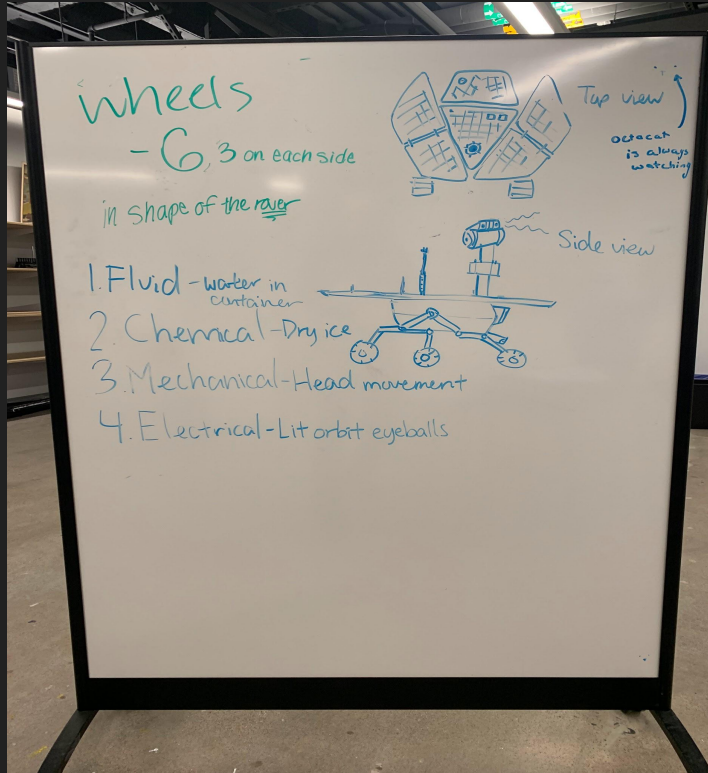 Wheels
- 6, 3 on each side
in shape of the rover
Top view
octacat
is always
watching
Side view
1. Fluid - water in
container
2. Chemical - Dry ice
3. Mechanical - Head movement
4. Electrical - Lit orbit eyeballs